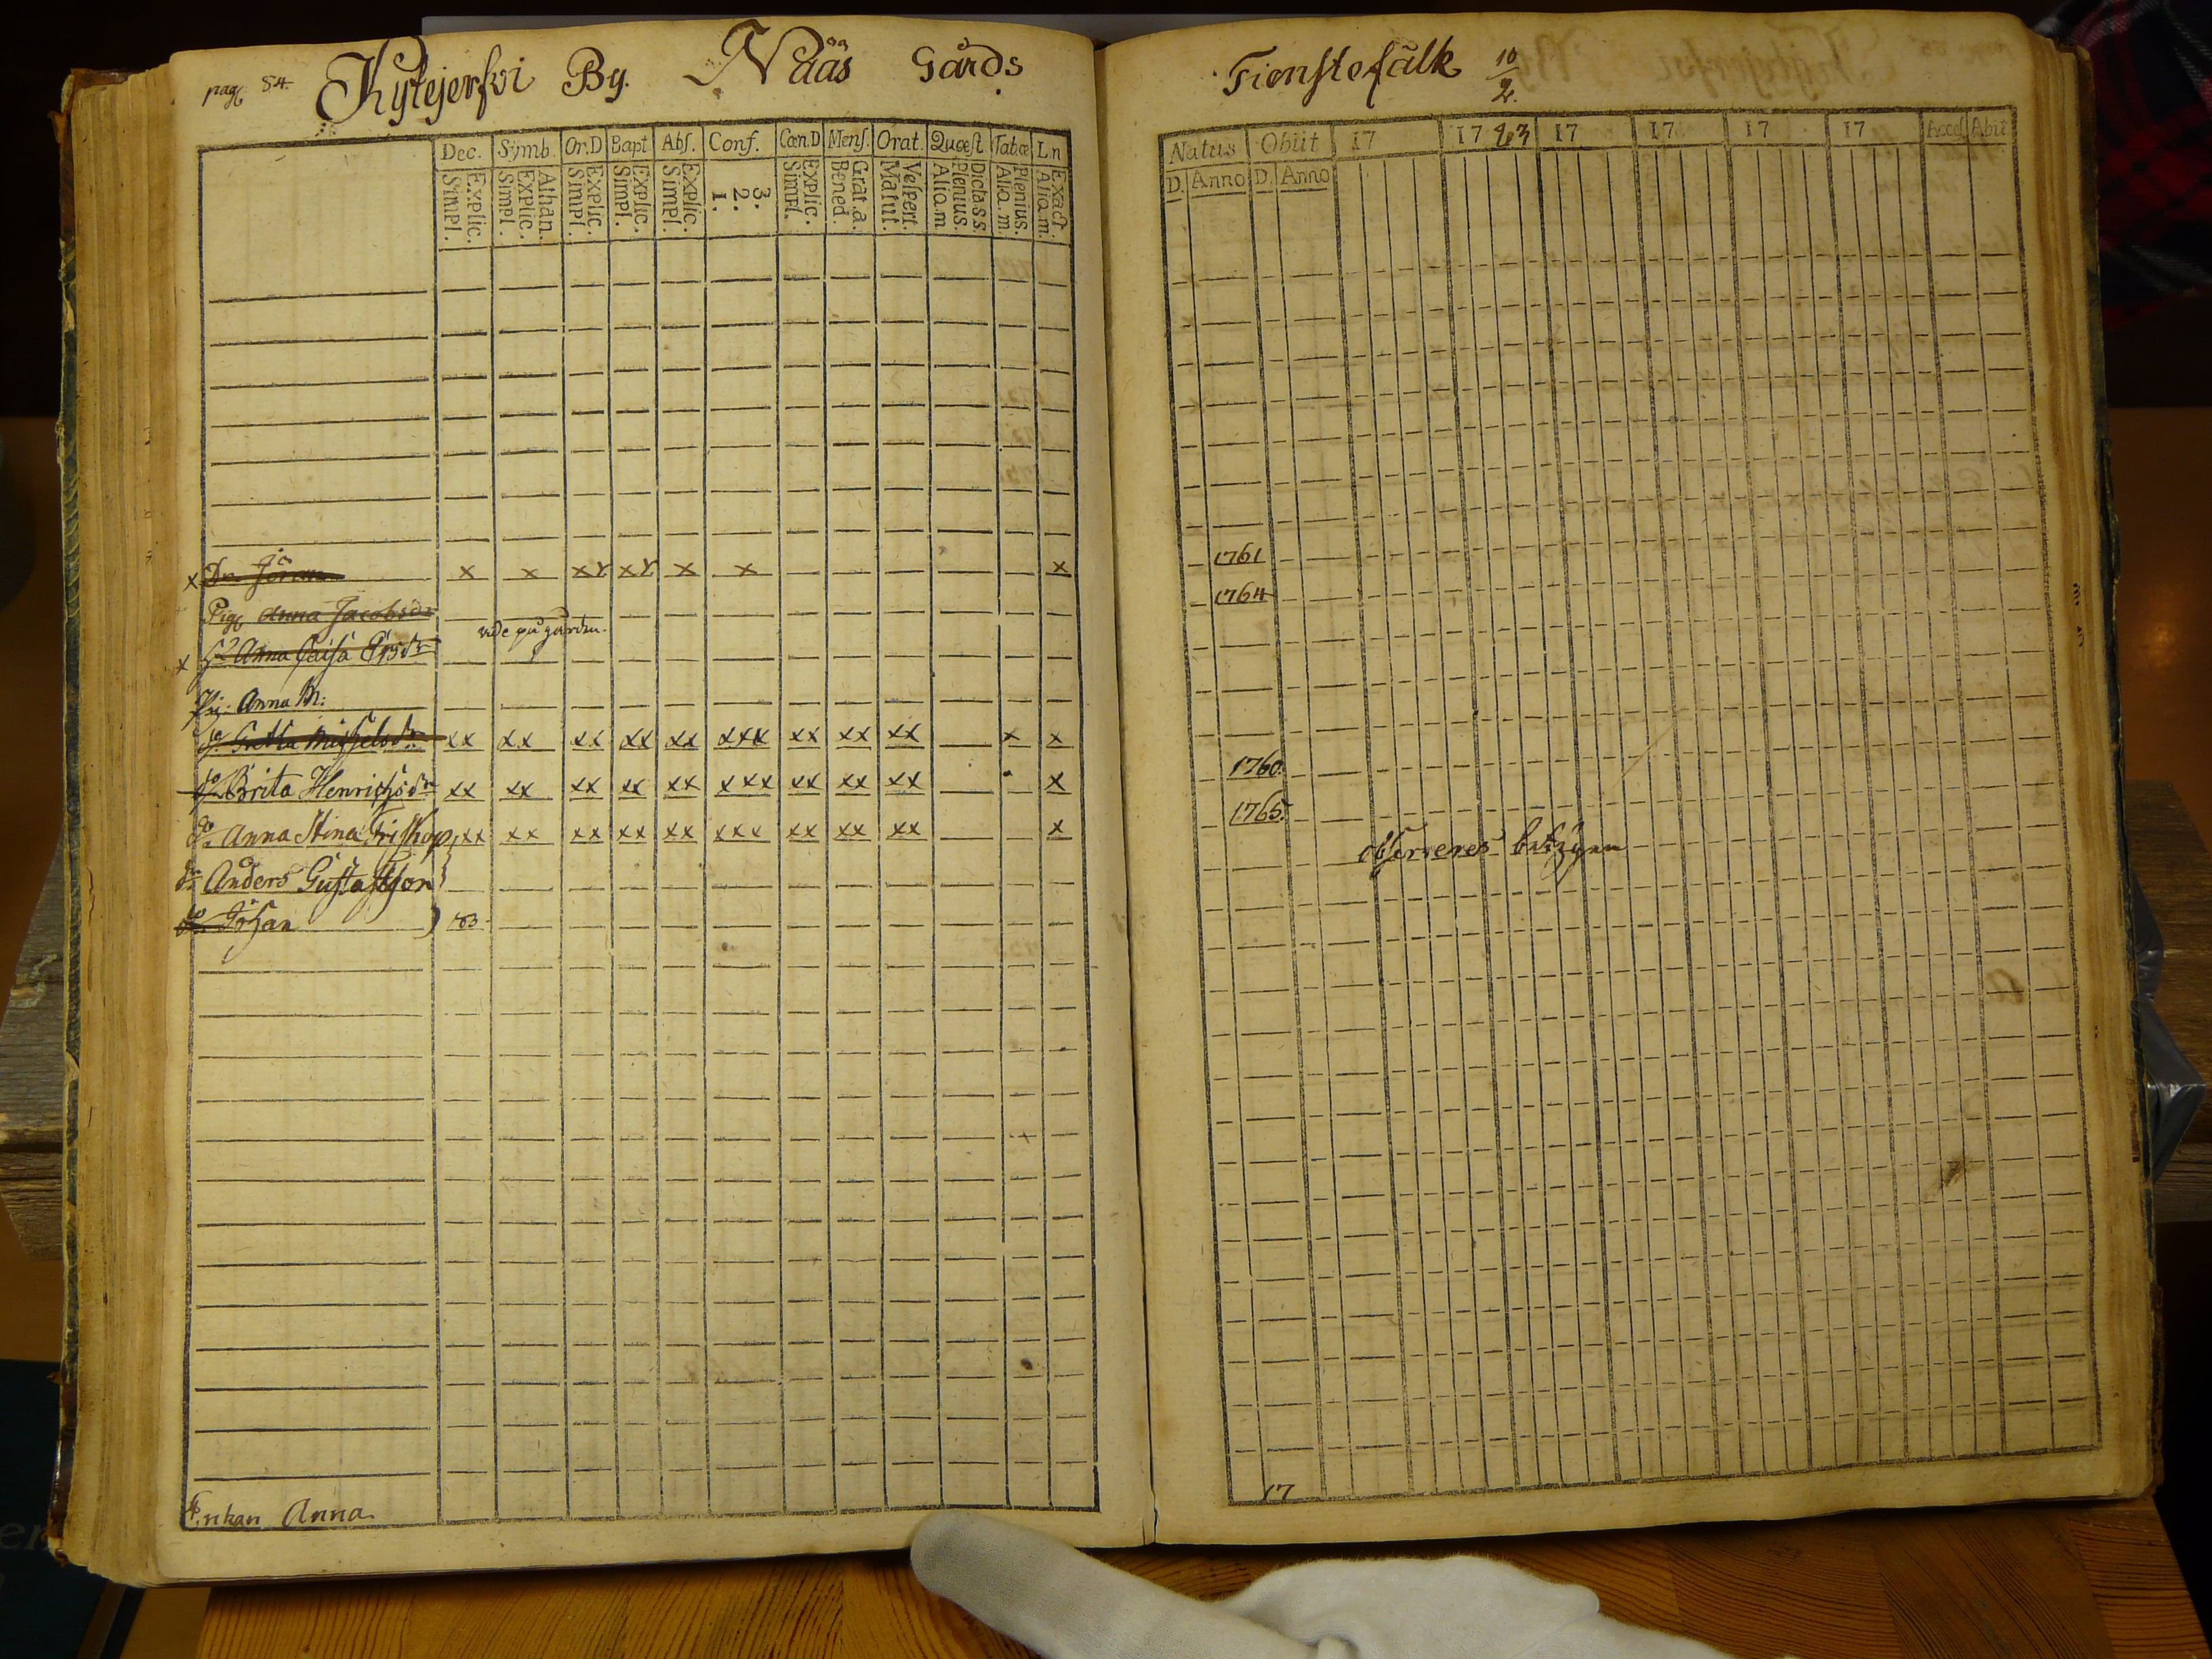 pag. 84. Kytejerfvi By. Nääs Gårds
Dec. Symb. Or.D Bapt Abs. Conf. Cœn.D Mens. Orat. Quæst Tabœ Ln
Simpl. Explic. Simpl. Explic. Athan. Simpl. Explic. Simpl. Explic. Simpl. Explic. 1. 2. 3. Simpl. Explic. Bened. Grat.a. Matut. Vespert. Aliq.m Plenius. Dicta s.s. Aliq.m Plenius. Aliq.m. Exact.
x Dr. Jöran x x xx xx x x x
Pig. Anna Jacobsdr
vide på gården.
x Anna Caisa Ersdr
Pig. Anna M:
do Mickelsdr xx xx xx xx xx xxx xx xx xx x x
do Brita Henrichsdr xx xx xx xx xx xxx xx xx xx x
do Anna Stina xx xx xx xx xx xxx xx xx xx x
dr. Anders Gustafsson
do Johan 83
Enkan Anna
Tienstefålk 10/2.
Natus Obiit 17 17 83 17 17 17 17 Acces Abiit
D. Anno D. Anno
1761
1764
1760.
1765.
observeres
17